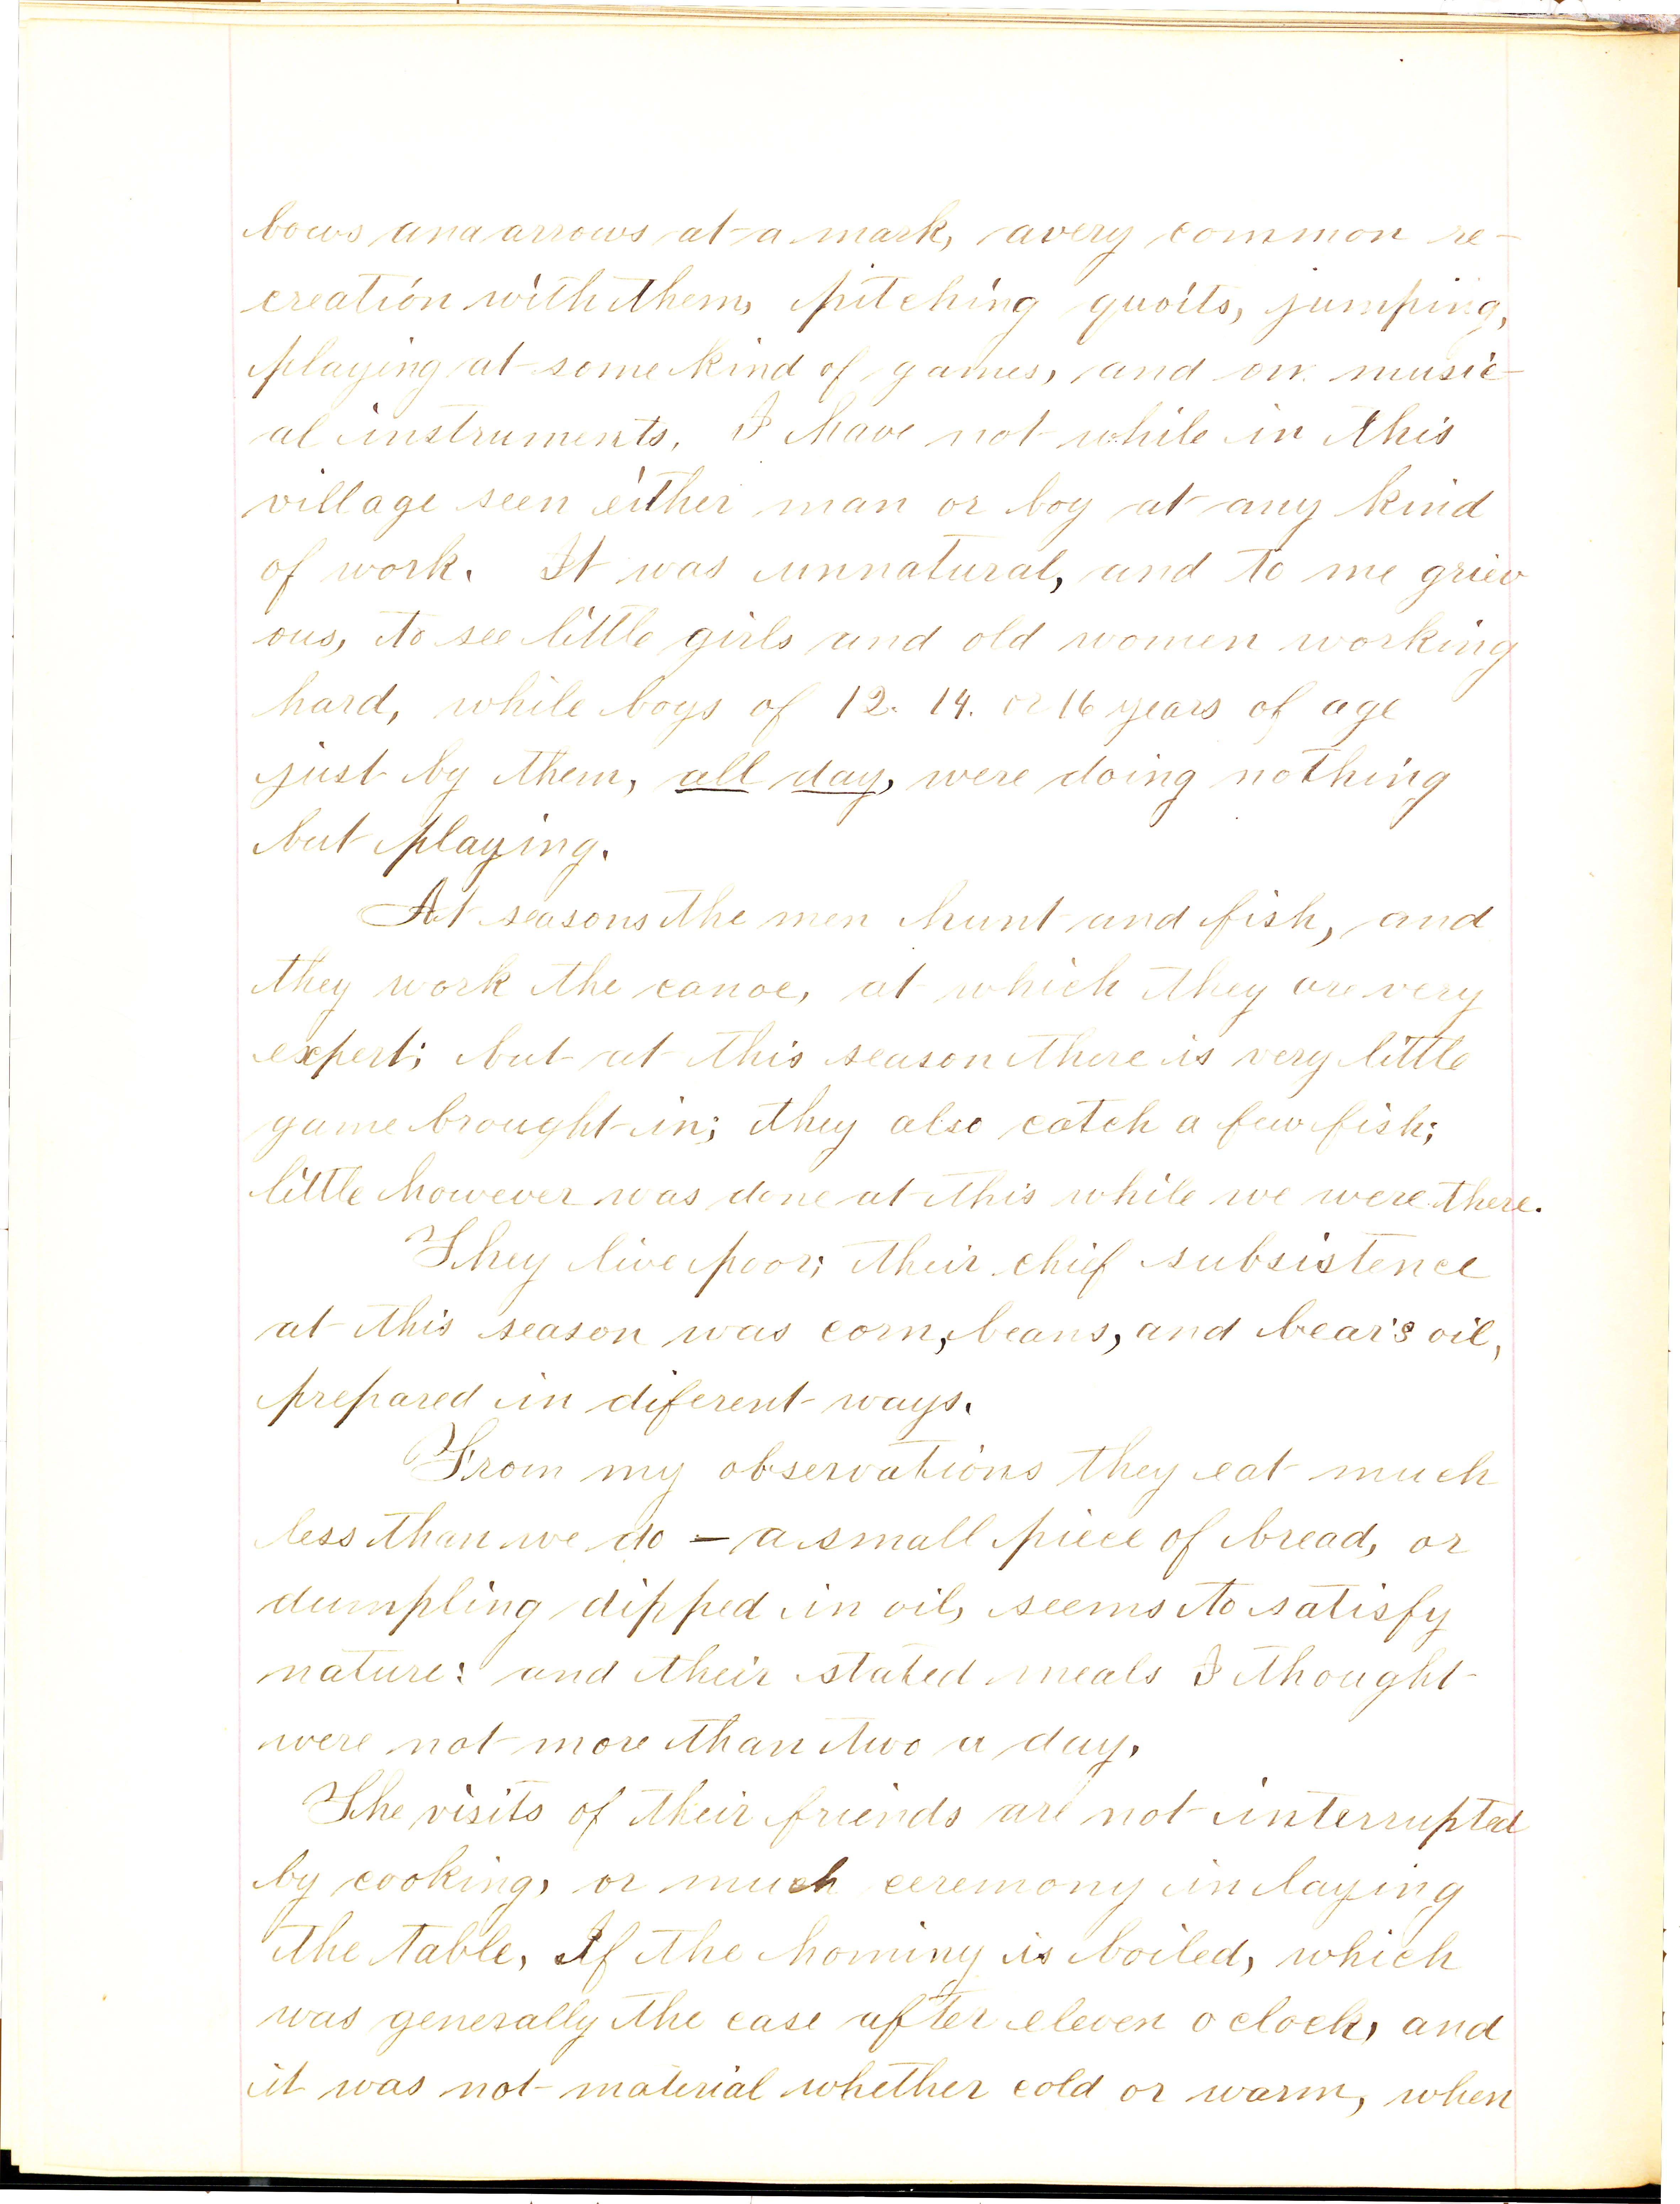 bows and arrows at a mark, a very common re-
creation with them, pitching quoits, jumping,
playing at some kind of games, and on music-
al instruments. I have not while in this
village seen either man or boy at any kind
of work. It was unnatural, and to me griev
ous, to see little girls and old women working
hard, while boys of 12. 14. or 16 years of age
just by them, all day, were doing nothing
but playing.
At seasons the men hunt and fish, and
they work the canoe, at which they are very
expert; but at this season there is very little
game brought in; they also catch a few fish;
little however was done at this while we were there.
They live poor; their chief subsistence
at this season was corn, beans, and bear's oil,
prepared in diferent ways.
From my observations they eat much
less than we do – a small piece of bread, or
dumpling dipped in oil, seems to satisfy
nature: and their stated meals I thought
were not more than two a day.
The visits of their friends are not interrupted
by cooking, or much ceremony in laying
the table. If the hominy is boiled, which
was generally the case after eleven o clock, and
it was not material whether cold or warm, when